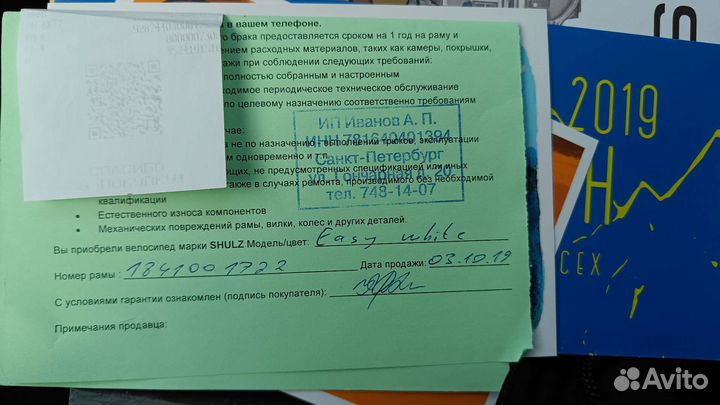 в вашем телефоне.
брака предоставляется сроком на 1 год на раму и
расходных материалов, таких как камеры, покрышки,
при соблюдении следующих требований:
полностью собранным и настроенным
периодическое техническое обслуживание
по целевому назначению соответственно требованиям
не по назначению, выполнении трюков, эксплуатации
одновременно и т.п.
не предусмотренных спецификацией или иных
также в случаях ремонта, производимого без необходимой
квалификации
Естественного износа компонентов
Механических повреждений рамы, вилки, колес и других деталей.
ИП Иванов А. П.
ИНН 781640401394
Санкт-Петербург
ул. Гончарная д. 20
тел. 748-14-07
Вы приобрели велосипед марки SHULZ Модель/цвет: Easy white
Номер рамы: Дата продажи: 03.10.19
С условиями гарантии ознакомлен (подпись покупателя):
Примечания продавца:
2019
Н
СЕХ
Avito